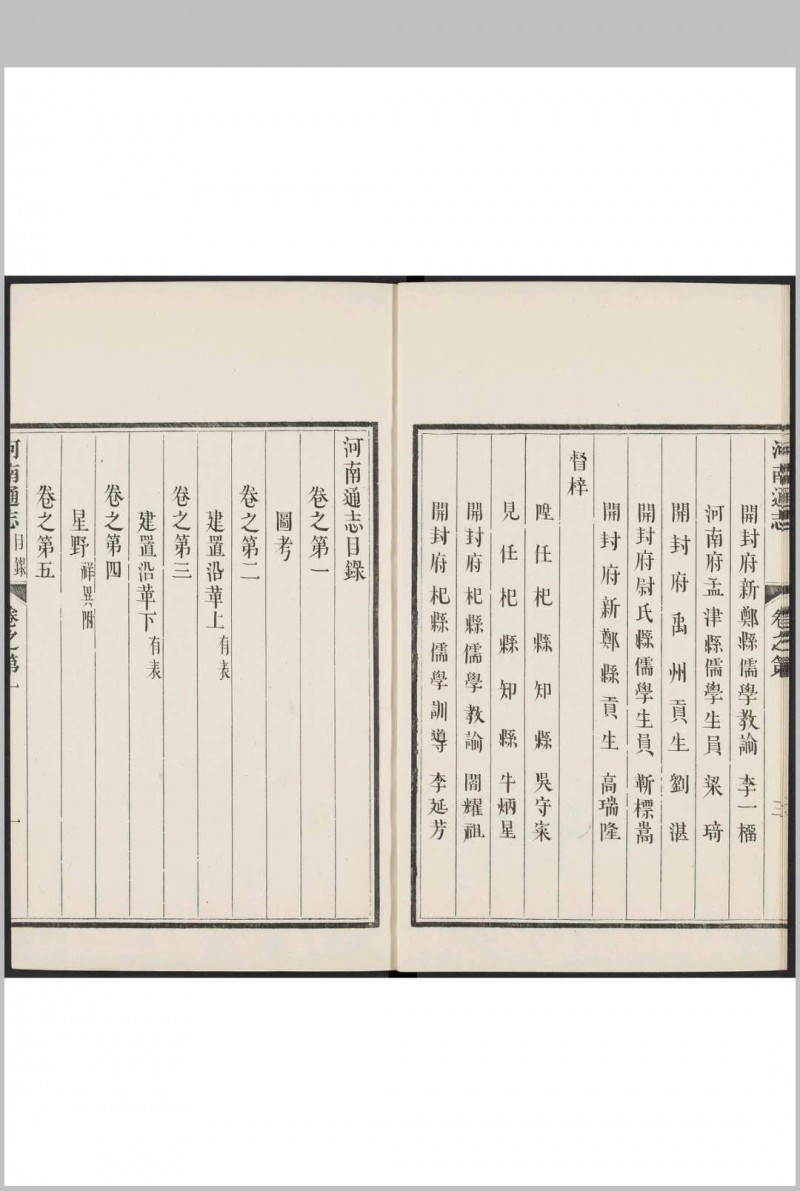 河南通志
卷之第
三
開封府新鄭縣儒學教諭 李一榗
河南府孟津縣儒學生員 梁琦
開封府禹州貢生 劉湛
開封府尉氏縣儒學生員 靳標嵩
開封府新鄭縣貢生 高瑞隆
督梓
陞任杞縣知縣 吳守寀
見任杞縣知縣 牛炳星
開封府杞縣儒學教諭 閻耀祖
開封府杞縣儒學訓導 李延芳
河南通志目錄
卷之第一
圖考
卷之第二
建置沿革上 有表
卷之第三
建置沿革下 有表
卷之第四
星野 祥異附
卷之第五
河南通志 目錄 卷之第一 一